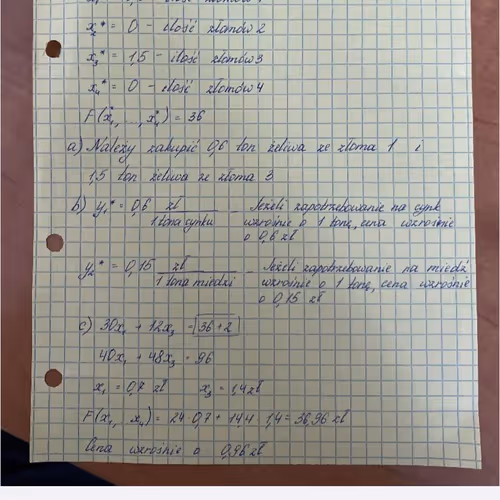 x₂* = 0 - ilość złomów 2
x₃* = 1,5 - ilość złomów 3
x₄* = 0 - ilość złomów 4
F(x₁*, ..., x₄*) = 36
a) Należy zakupić 0,6 ton żeliwa ze złoma 1 i
1,5 ton żeliwa ze złoma 3
b) y₁* = 0,6 zł / 1 tona cynku - Jeżeli zapotrzebowanie na cynk
wzrośnie o 1 tonę, cena wzrośnie
o 0,6 zł
y₂* = 0,15 zł / 1 tona miedzi - Jeżeli zapotrzebowanie na miedź
wzrośnie o 1 tonę, cena wzrośnie
o 0,15 zł
c) 30x₁ + 12x₃ = 36+2
40x₁ + 48x₃ = 96
x₁ = 0,7 zł x₃ = 1,4 zł
F(x₁, x₄) = 24·0,7 + 14,4·1,4 = 36,96 zł
Cena wzrośnie o 0,96 zł